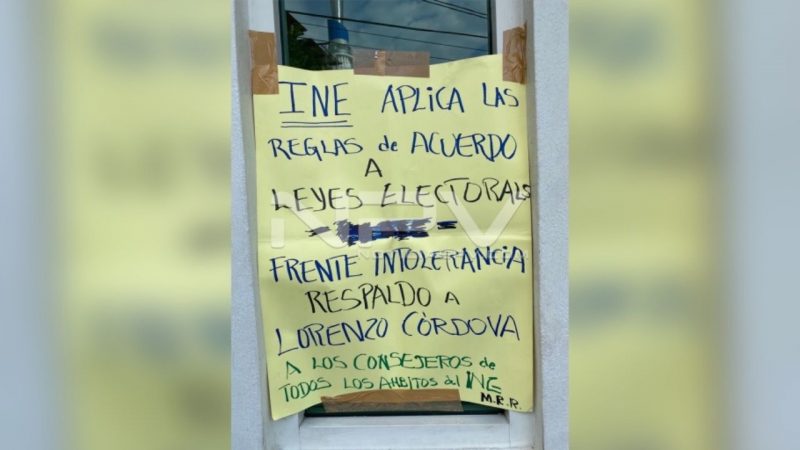 INE APLICA LAS
REGLAS de ACUERDO
A
LEYES ELECTORALS
FRENTE INTOLERANCIA
RESPALDO A
LORENZO CÒRDOVA
A LOS CONSEJEROS de
TODOS LOS AMBITOS del INE
M.R.R.